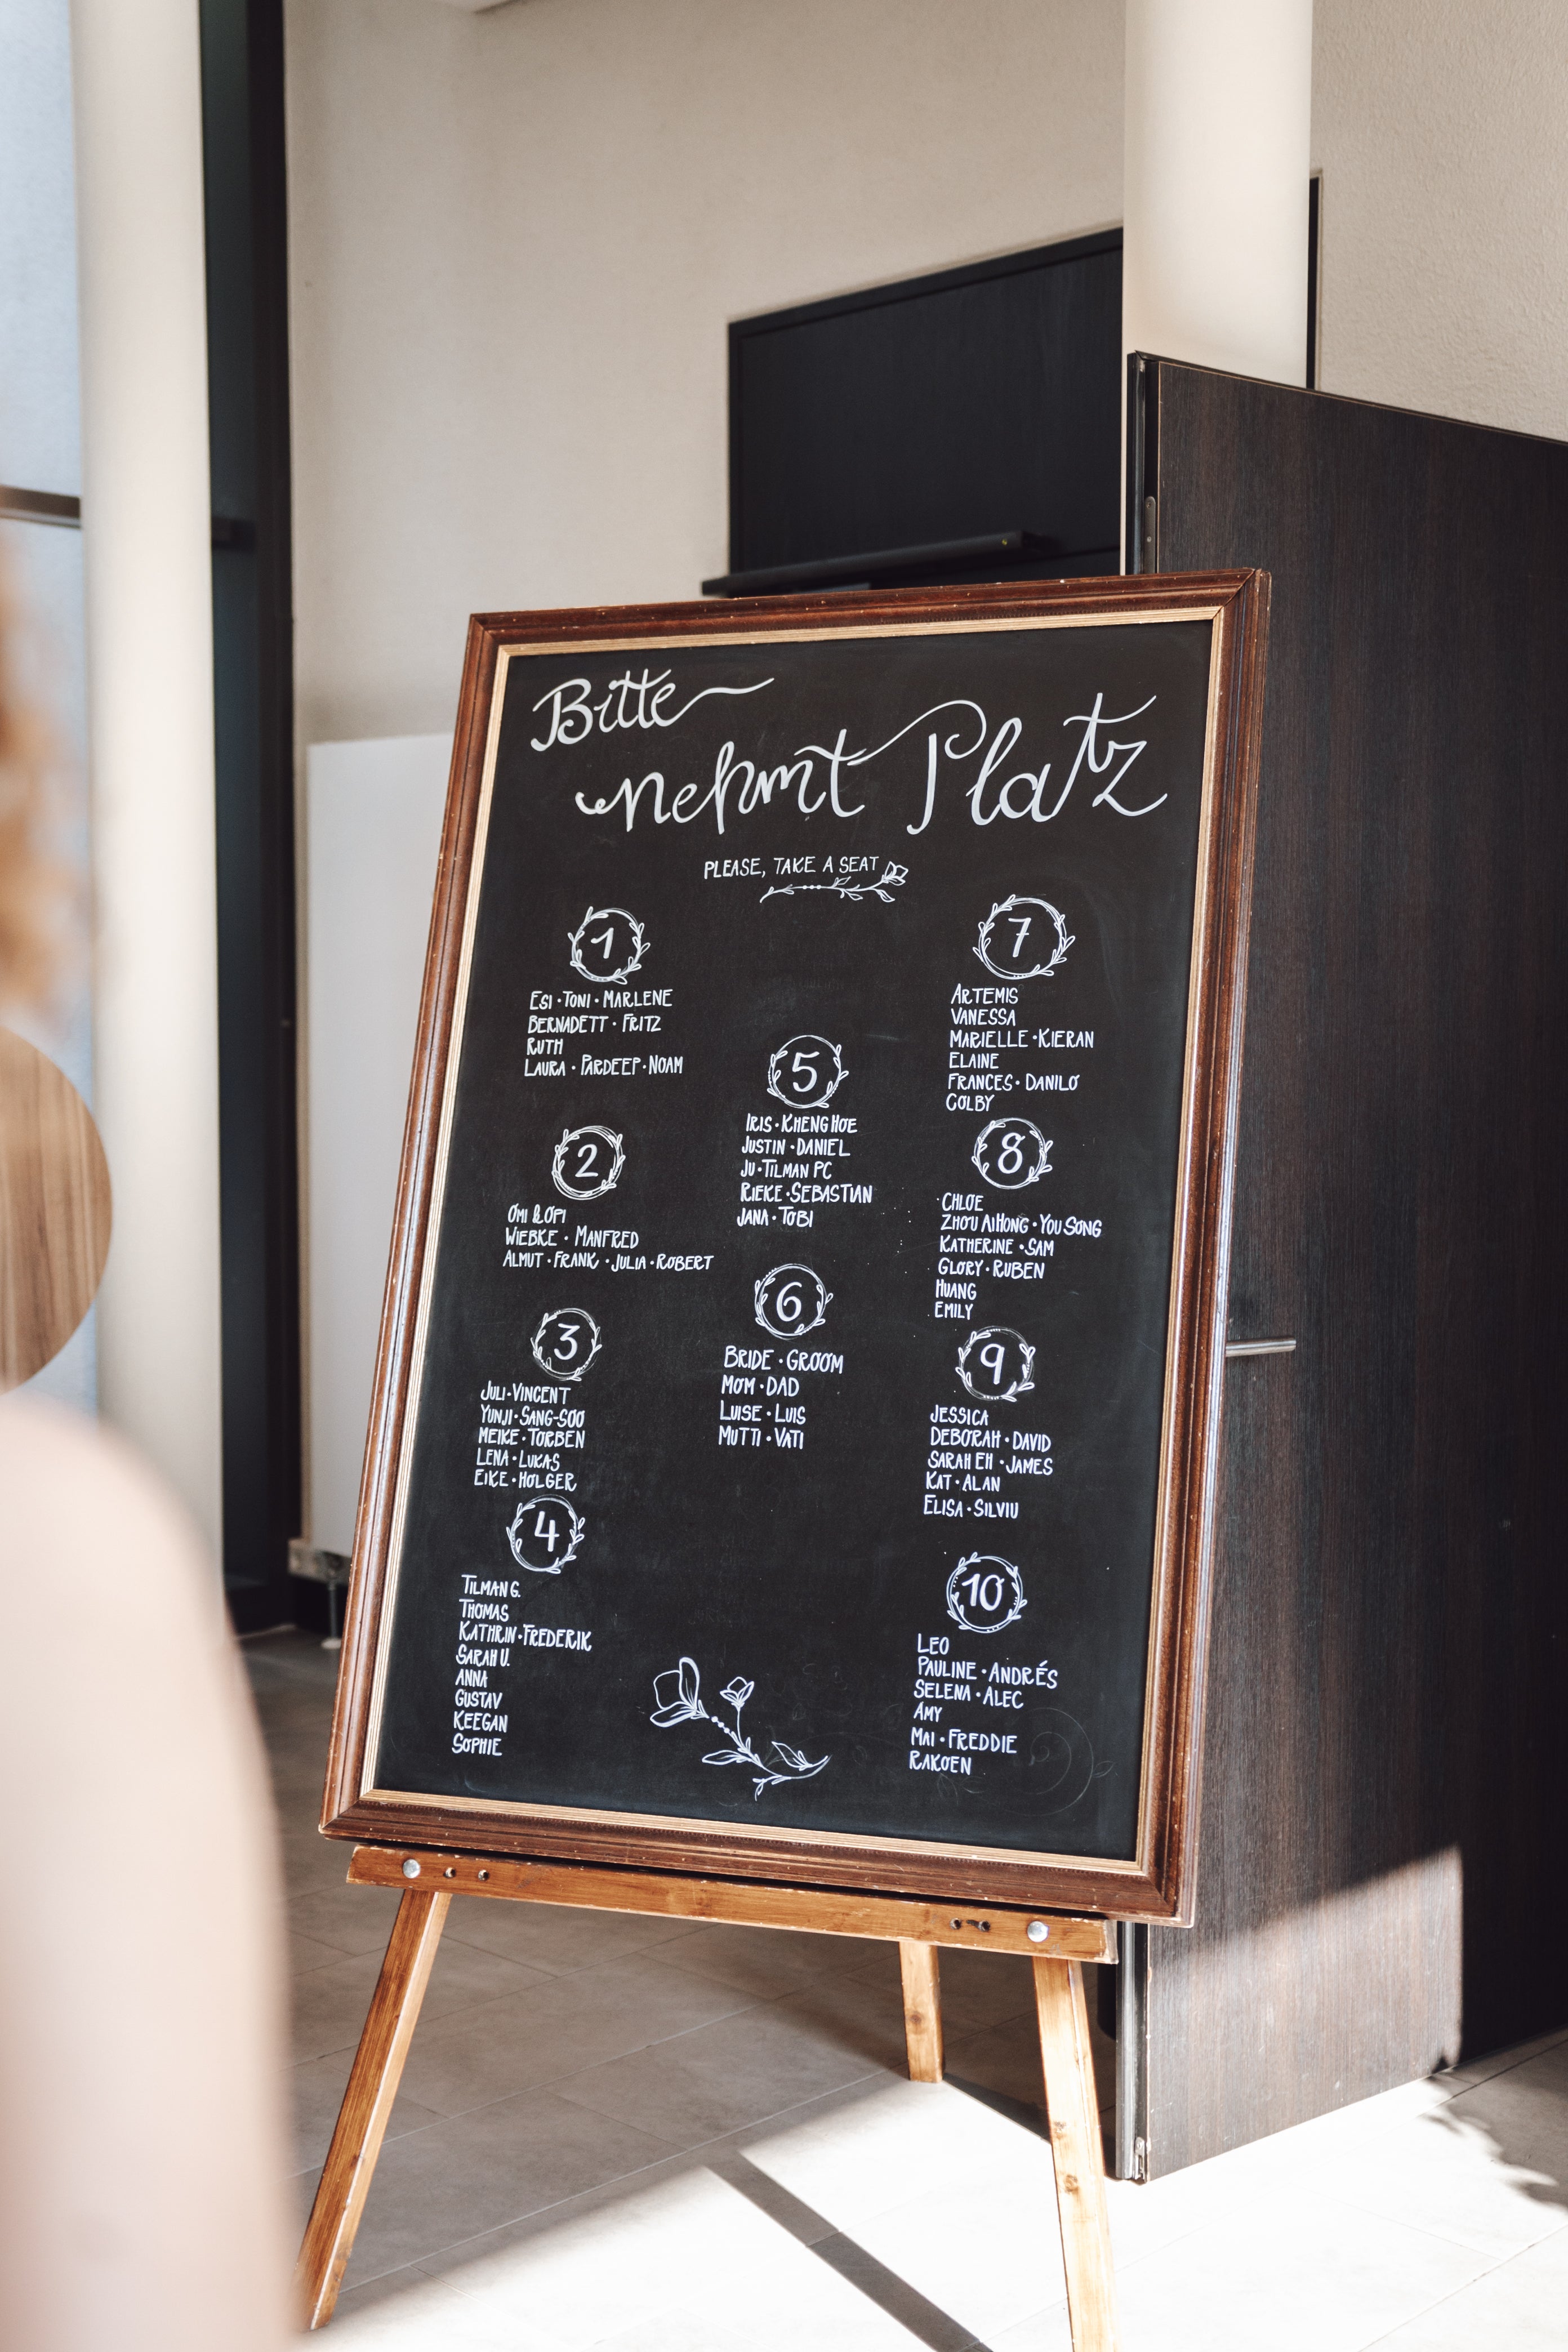 Bitte
nehmt Platz
PLEASE, TAKE A SEAT
1
ESI · TONI · MARLENE
BERNADETT · FRITZ
RUTH
LAURA · PARDEEP · NOAM
2
OMI & OPI
WIEBKE · MANFRED
ALMUT · FRANK · JULIA · ROBERT
3
JULI · VINCENT
YUNJI · SANG-SOO
MEIKE · TORBEN
LENA · LUKAS
EIKE · HOLGER
4
TILMAN G.
THOMAS
KATHRIN · FREDERIK
SARAH U.
ANNA
GUSTAV
KEEGAN
SOPHIE
5
IRIS · KHENG HOE
JUSTIN · DANIEL
JU · TILMAN PC
RIEKE · SEBASTIAN
JANA · TOBI
6
BRIDE · GROOM
MOM · DAD
LUISE · LUIS
MUTTI · VATI
7
ARTEMIS
VANESSA
MARIELLE · KIERAN
ELAINE
FRANCES · DANILO
COLBY
8
· CHLOE
ZHOU AIHONG · YOU SONG
KATHERINE · SAM
GLORY · RUBEN
HUANG
EMILY
9
JESSICA
DEBORAH · DAVID
SARAH EH · JAMES
KAT · ALAN
ELISA · SILVIU
10
LEO
PAULINE · ANDRÉS
SELENA · ALEC
AMY
MAI · FREDDIE
RAKOEN